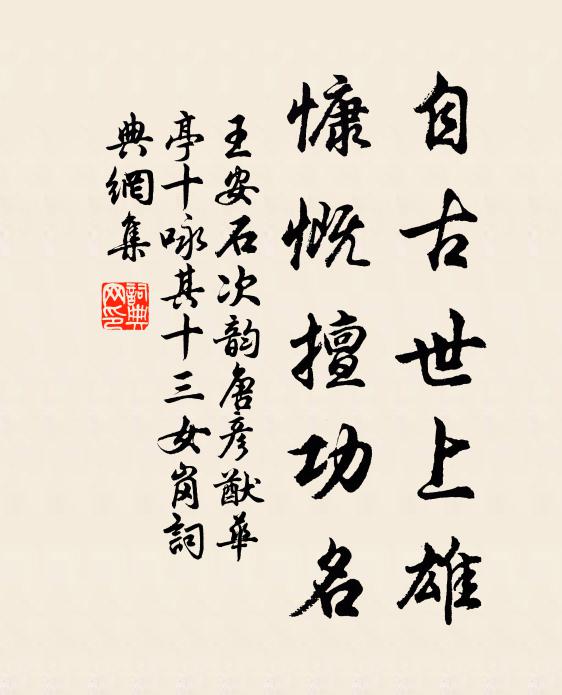 自古世上雄
慷慨擅功名
王安石次韵唐彦猷華
亭十咏其十三女岗詞
典網集
詞典网印